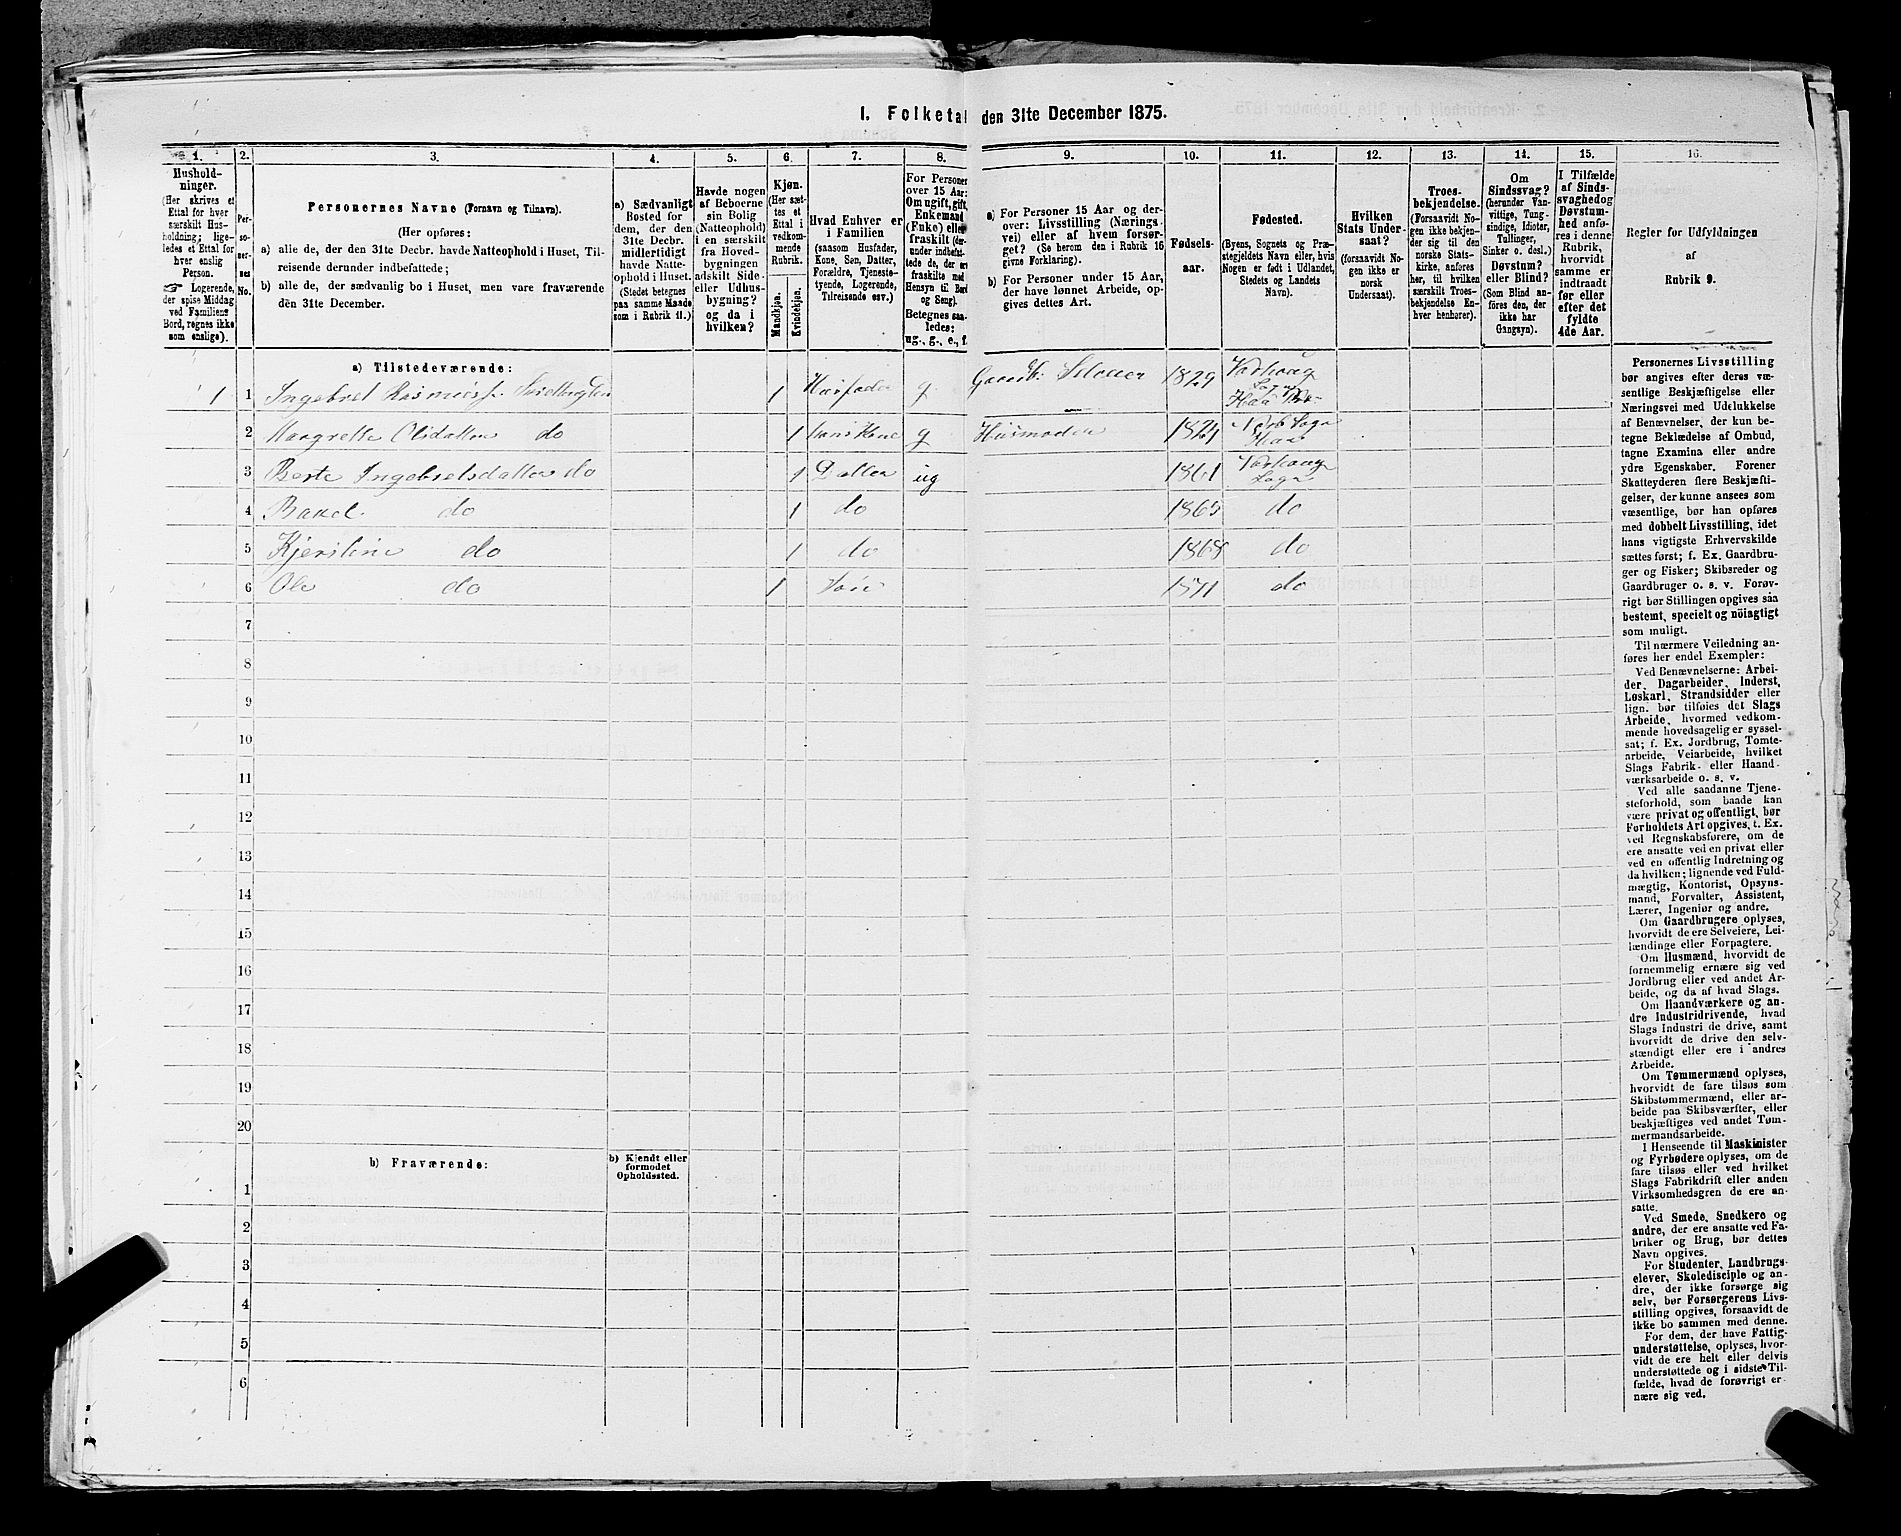 I. Folketal den 31te December 1875.
1. 2. 3. 4. 5. 6. 7. 8. 9. 10. 11. 12. 13. 14. 15. 16.
Hushold-
ninger.
(Her skrives et
Ettal for hver
særskilt Hus-
holdning; lige-
ledes et Ettal for
hver enslig
Person.
☞ Logerende,
der spise Middag
ved Familiens
Bord, regnes ikke
som enslige).
Per-
so-
ner-
nes
No.
Personernes Navne (Fornavn og Tilnavn).
(Her opføres:
a) alle de, der den 31te Decbr. havde Natteophold i Huset, Til-
reisende derunder indbefattede;
b) alle de, der sædvanlig bo i Huset, men vare fraværende
den 31te December.
a) Sædvanligt
Bosted for
dem, der den
31te Decbr.
midlertidigt
havde Natte-
ophold i Huset.
(Stedet betegnes
paa samme Maade
som i Rubrik 11.)
Havde nogen
af Beboerne
sin Bolig
(Natteophold)
i en særskilt
fra Hoved-
bygningen
adskilt Side-
eller Udhus-
bygning?
og da i
hvilken?
Kjøn.
(Her sæt-
tes et
Ettal i
vedkom-
mende
Rubrik.
Mandkjøn.
Kvindekjøn.
Hvad Enhver er
i Familien
(saasom Husfader,
Kone, Søn, Datter,
Forældre, Tjeneste-
tyende, Logerende,
Tilreisende osv.)
For Personer
over 15 Aar:
Om ugift, gift,
Enkemand
(Enke) eller
fraskilt (der-
under indbefat-
tede de, der ere
fraskilte med
Hensyn til Bord
og Seng).
Betegnes saa-
ledes:
ug., g., e., f.
a) For Personer 15 Aar og der-
over: Livsstilling (Nærings-
vei) eller af hvem forsør-
get? (Se herom den i Rubrik 16
givne Forklaring).
b) For Personer under 15 Aar,
der have lønnet Arbeide, op-
gives dettes Art.
Fødsels-
aar.
Fødested.
(Byens, Sognets og Præ-
stegjeldets Navn eller, hvis
Nogen er født i Udlandet,
Stedets og Landets
Navn).
Hvilken
Stats Under-
saat?
(forsaavidt No-
gen ikke er
norsk
Undersaat).
Troes-
bekjendelse.
(Forsaavidt No-
gen ikke bekjen-
der sig til den
norske Stats-
kirke, anføres
her, til hvilken
særskilt Troes-
bekjendelse En-
hver henhører).
Om
Sindssvag?
(herunder Van-
vittige, Tung-
sindige, Idioter,
Tullinger,
Sinker o. desl.).
Døvstum?
eller Blind?
(Som Blind an-
føres den, der
ikke har
Gangsyn).
I Tilfælde
af Sinds-
svaghed og
Døvstum-
hed anfø-
res i denne
Rubrik,
hvorvidt
samme er
indtraadt
før eller
efter det
fyldte
4de Aar.
Regler for Udfyldningen
af
Rubrik 9.
a) Tilstedeværende:
1 1 Ingebret Rasmuss. 1 Husfader g. Gaardb. Selveier 1829 Varhoug
Sogn
Haa
2 Maagrette Olsdatter do 1 Hans Kone g Husmoder 1824 Sogn
Haa
3 Berte Ingebretsdatter do 1 Datter ug 1861 Varhoug
Sogn
4 do 1 do 1865 do
5 Kjerstine do 1 do 1868 do
6 Ole do 1 1871 do
7
8
9
10
11
12
13
14
15
16
17
18
19
20
b) Fraværende:
b) Kjendt eller
formodet
Opholdssted.
1
2
3
4
5
6
Personernes Livsstilling
bør angives efter deres væ-
sentlige Beskjæftigelse eller
Næringsvei med Udelukkelse
af Benævnelser, der kun be-
tegne Beklædelse af Ombud,
tagne Examina eller andre
ydre Egenskaber. Forener
Skatteyderen flere Beskjæfti-
gelser, der kunne ansees som
væsentlige, bør han opføres
med dobbelt Livsstilling, idet
hans vigtigste Erhvervskilde
sættes først; f. Ex. Gaardbru-
ger og Fisker; Skibsreder og
Gaardbruger o. s. v. Forøv-
rigt bør Stillingen opgives saa
bestemt, specielt og nøiagtigt
som muligt.
Til nærmere Veiledning an-
føres her endel Exempler:
Ved Benævnelserne: Arbei-
der, Dagarbeider, Inderst,
Løskarl, Strandsidder eller
lign. bør tilføies det Slags
Arbeide, hvormed vedkom-
mende hovedsagelig er syssel-
sat; f. Ex. Jordbrug, Tomte-
arbeide, Veiarbeide, hvilket
Slags Fabrik- eller Haand-
værksarbeide o. s. v.
Ved alle saadanne Tjene-
steforhold, som baade kan
være privat og offentligt, bør
Forholdets Art opgives, t. Ex.
ved Regnskabsførere, om de
ere ansatte ved en privat eller
ved en offentlig Indretning og
da hvilken; lignende ved Fuld-
mægtig, Kontorist, Opsyns-
mand, Forvalter, Assistent,
Lærer, Ingeniør og andre.
Om Gaardbrugere oplyses,
hvorvidt de ere Selveiere, Lei-
lændinge eller Forpagtere.
Om Husmænd, hvorvidt de
fornemmelig ernære sig ved
Jordbrug eller ved andet Ar-
beide, og da af hvad Slags.
Om Haandværkere og an-
dre Industridrivende, hvad
Slags Industri de drive, samt
hvorvidt de drive den selv-
stændigt eller ere i andres
Arbeide.
Om Tømmermænd oplyses,
hvorvidt de fare tilsøs som
Skibstømmermænd, eller ar-
beide paa Skibsværfter, eller
beskjæftiges ved andet Tøm-
mermandsarbeide.
I Henseende til Maskinister
og Fyrbødere oplyses, om de
fare tilsøs eller ved hvilket
Slags Fabrikdrift eller anden
Virksomhedsgren de ere an-
satte.
Ved Smede, Snedkere og
andre, der ere ansatte ved Fa-
briker og Brug, bør dettes
Navn opgives.
For Studenter, Landbrugs-
elever, Skoledisciple og an-
dre, der ikke forsørge sig
selv, bør Forsørgerens Livs-
stilling opgives, forsaavidt de
ikke bo sammen med denne.
For dem, der have Fattig-
understøttelse, oplyses, hvor-
vidt de ere helt eller delvis
understøttede og i sidste Til-
fælde, hvad de forøvrigt er-
nære sig ved.